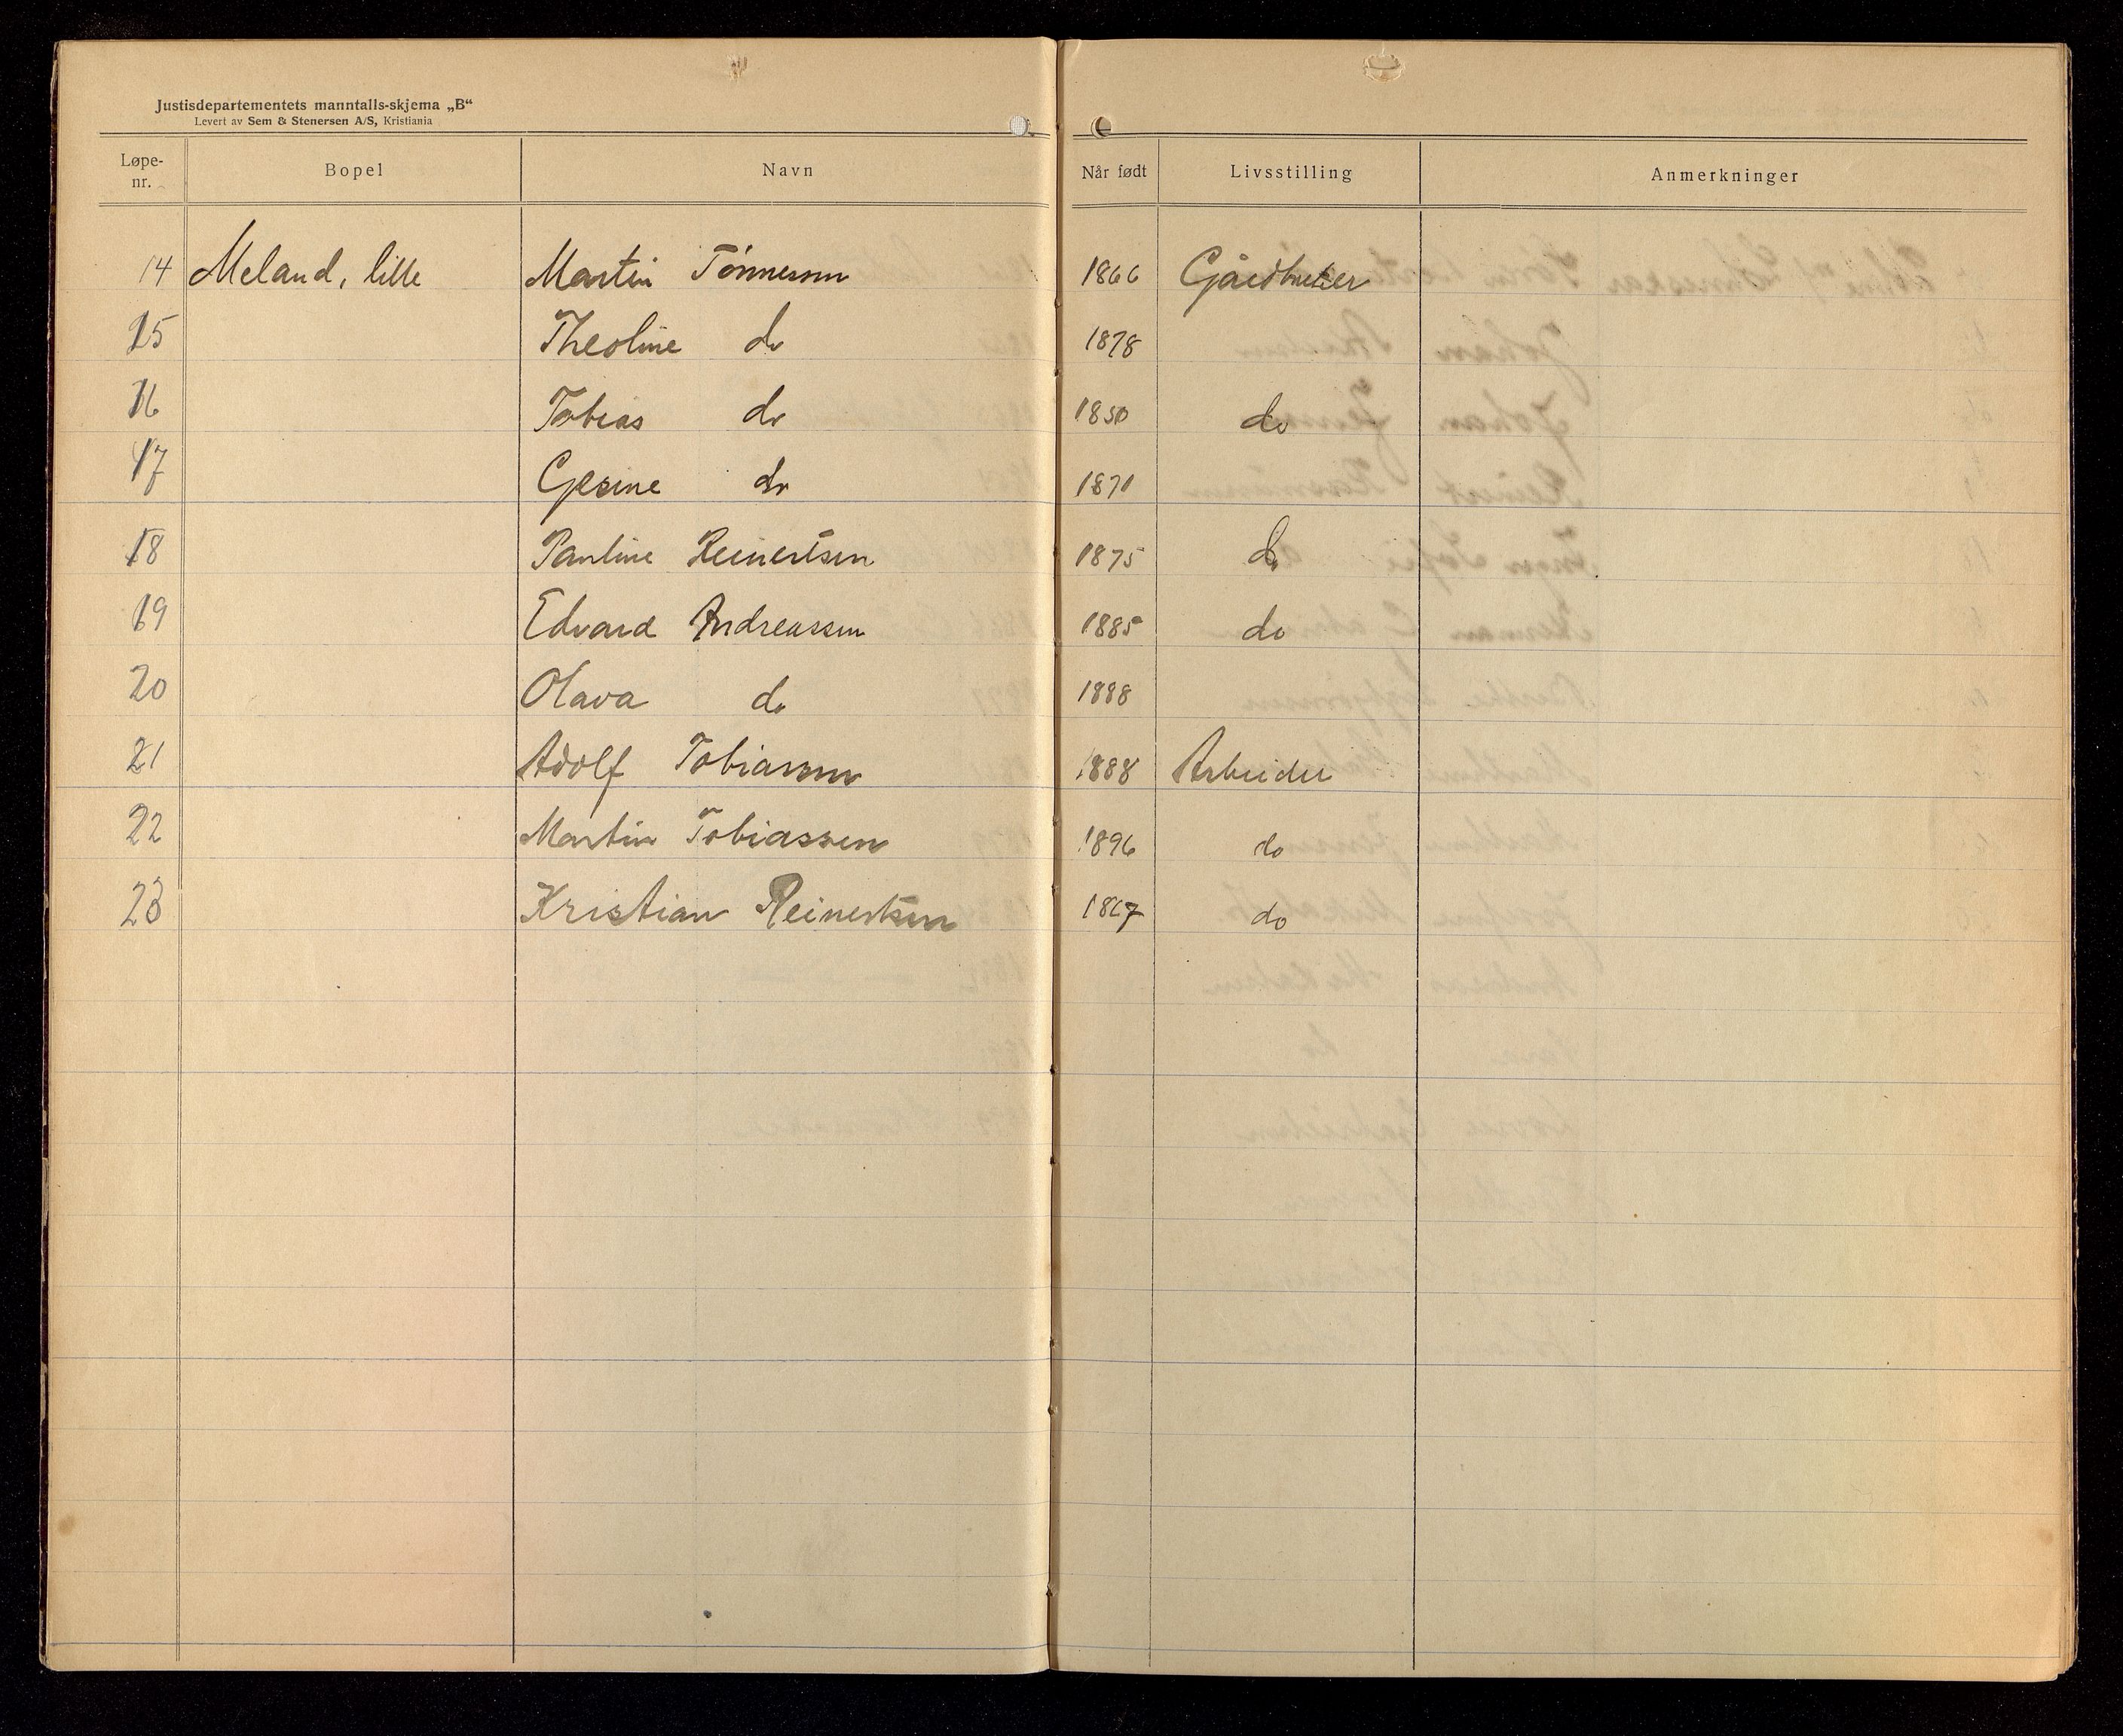 Justisdepartementets manntalls-skjema „B“
Levert av Sem & Stenersen A/S, Kristiania
Løpe-nr. Bopel Navn Når født Livsstilling Anmerkninger
14 Meland, lille Martin Tönnessen 1866 Gårdbruker
15 Theoline do 1878
16 Tobias do 1850 do
17 Gesine do 1871
18 Pauline Reinertsen 1875 do
19 Edvard Andreassen 1885 do
20 Olava do 1888
21 Adolf Tobiassen 1888 Arbeider
22 Martin Tobiassen 1896 do
23 Kristian Reinertsen 1867 do